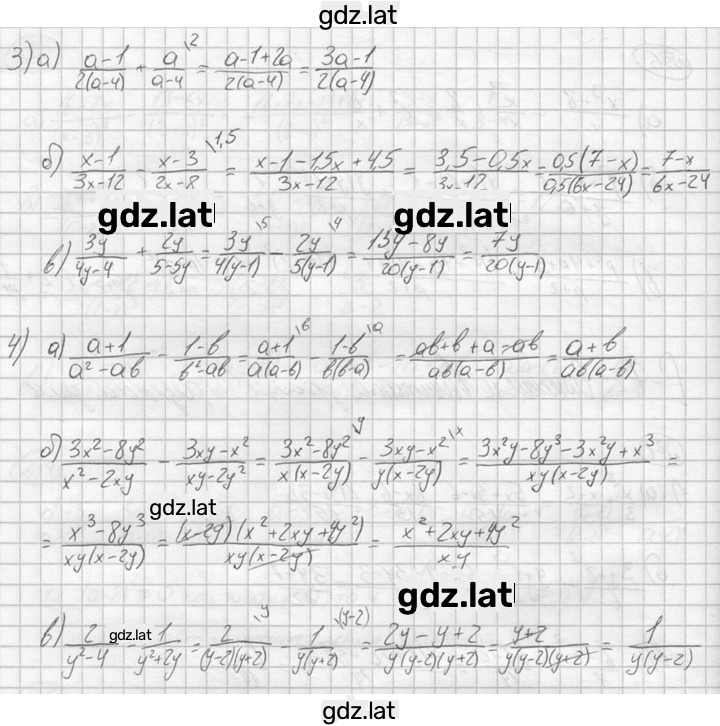 gdz.lat
3) а) (a-1)/(2(a-4)) + a/(a-4) \2 = (a-1+2a)/(2(a-4)) = (3a-1)/(2(a-4))
б) (x-1)/(3x-12) - (x-3)/(2x-8) \1,5 = (x-1-1,5x+4,5)/(3x-12) = (3,5-0,5x)/(3x-12) = (0,5(7-x))/(0,5(6x-24)) = (7-x)/(6x-24)
gdz.lat gdz.lat
в) 3y/(4y-4) + 2y/(5-5y) = 3y/(4(y-1)) \5 - 2y/(5(y-1)) \4 = (15y-8y)/(20(y-1)) = 7y/(20(y-1))
4) а) (a+1)/(a²-ab) - (1-b)/(b²-ab) = (a+1)/(a(a-b)) \b - (1-b)/(b(b-a)) \a = (ab+b+a-ab)/(ab(a-b)) = (a+b)/(ab(a-b))
б) (3x²-8y²)/(x²-2xy) - (3xy-x²)/(xy-2y²) = (3x²-8y²)/(x(x-2y)) \y - (3xy-x²)/(y(x-2y)) \x = (3x²y-8y³-3x²y+x³)/(xy(x-2y)) =
gdz.lat
= (x³-8y³)/(xy(x-2y)) = ((x-2y)(x²+2xy+4y²))/(xy(x-2y)) = (x²+2xy+4y²)/(xy)
gdz.lat
в) 2/(y²-4) - 1/(y²+2y) = 2/((y-2)(y+2)) \y - 1/(y(y+2)) \(y-2) = (2y-y+2)/(y(y-2)(y+2)) = (y+2)/(y(y-2)(y+2)) = 1/(y(y-2))
gdz.lat
gdz.lat